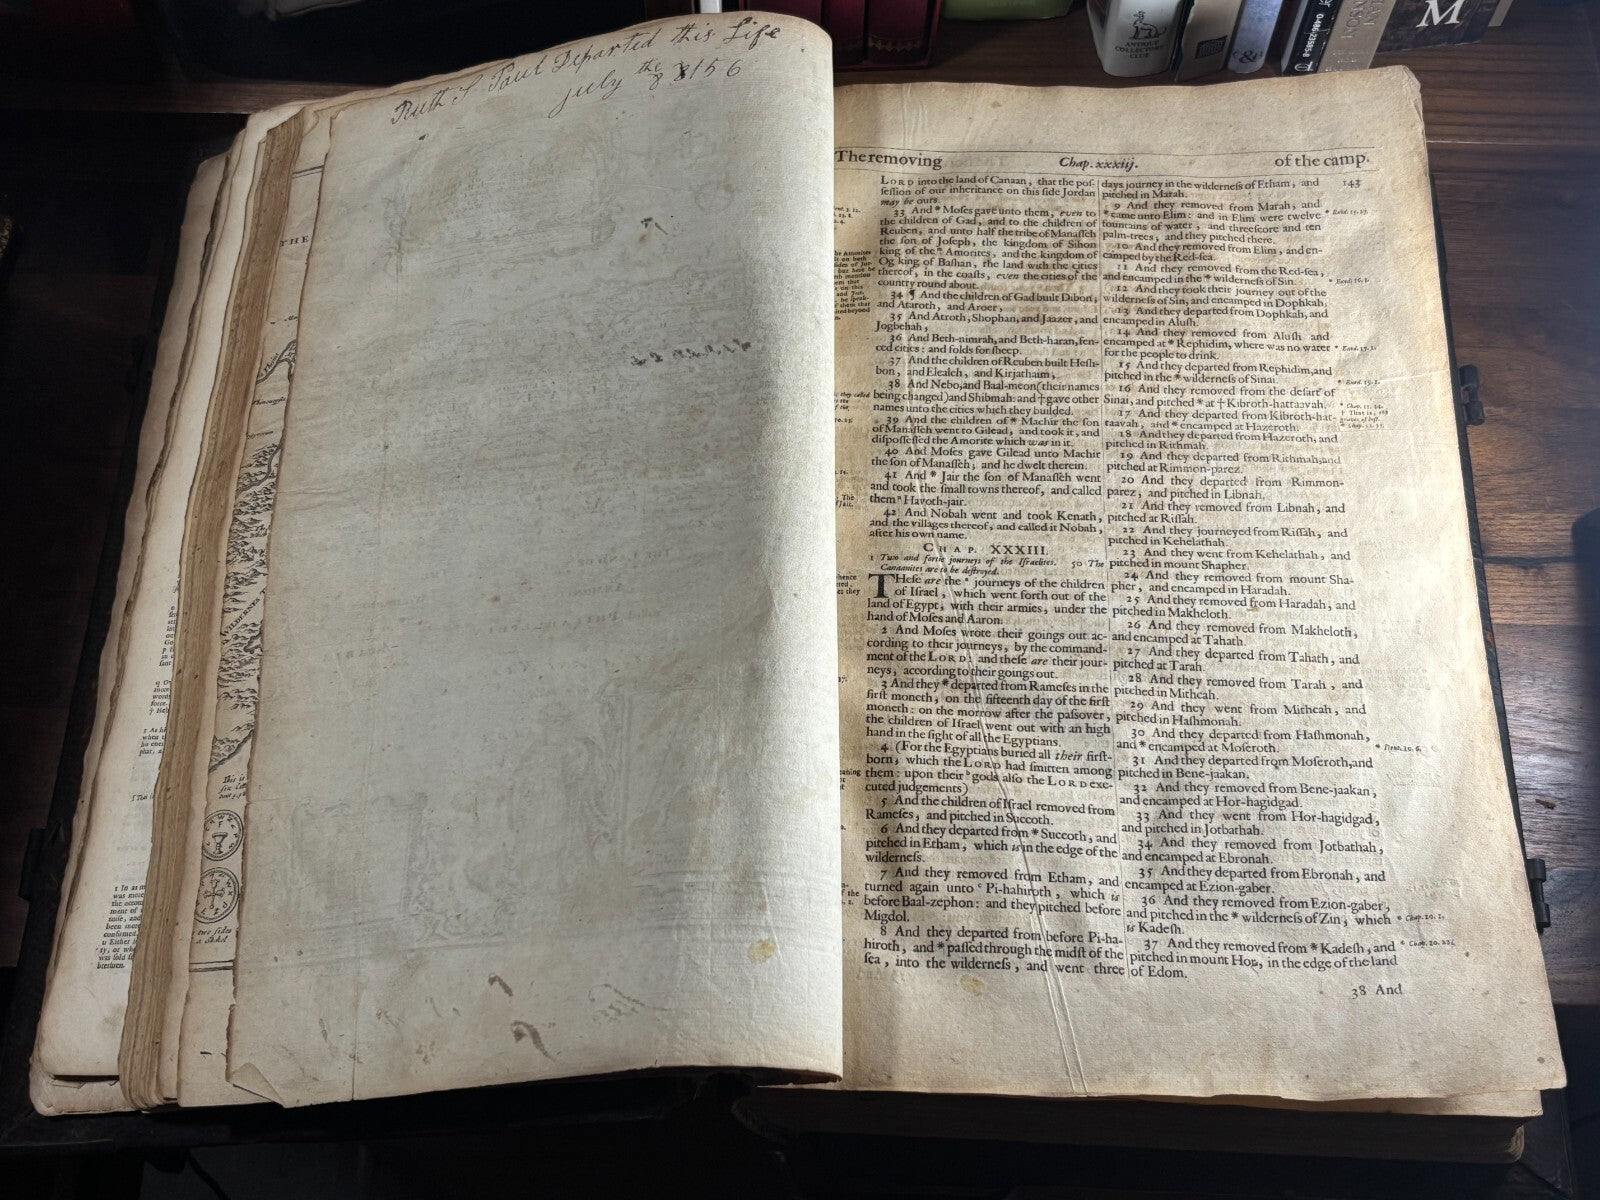 Ruth S Paul Departed this Life
july the 8 3156
ANTIQUE
COLLECTORS'
CLUB
M
THE
The removing
Chap. xxxiij.
of the camp.
143
LORD into the land of Canaan, that the pos-
session of our inheritance on this side Jordan
may be ours.
33 And * Moſes gave unto them, even to
the children of Gad, and to the children of
Reuben, and unto half the tribe of Manaſſeh
the ſon of Joſeph, the kingdom of Sihon
king of the Amorites, and the kingdom of
Og king of Baſhan, the land with the cities
thereof, in the coaſts, even the cities of the
country round about.
34 ¶ And the children of Gad built Dibon,
and Ataroth, and Aroer,
35 And Atroth, Shophan, and Jaazer, and
Jogbehah,
36 And Beth-nimrah, and Beth-haran, fen-
ced cities: and folds for ſheep.
37 And the children of Reuben built Heſh-
bon, and Elealeh, and Kirjathaim,
38 And Nebo, and Baal-meon (their names
being changed) and Shibmah: and † gave other
names unto the cities which they builded.
39 And the children of * Machir the ſon
of Manaſſeh went to Gilead, and took it, and
diſpoſſeſſed the Amorite which was in it.
40 And Moſes gave Gilead unto Machir
the ſon of Manaſſeh; and he dwelt therein.
41 And * Jair the ſon of Manaſſeh went
and took the ſmall towns thereof, and called
them Havoth-jair.
42 And Nobah went and took Kenath,
and the villages thereof, and called it Nobah,
after his own name.
CHAP. XXXIII.
1 Two and fortie journeys of the Iſraelites. 50 The
Canaanites are to be deſtroyed.
THeſe are the journeys of the children
of Iſrael, which went forth out of the
land of Egypt, with their armies, under the
hand of Moſes and Aaron.
2 And Moſes wrote their goings out ac-
cording to their journeys, by the command-
ment of the LORD: and theſe are their jour-
neys, according to their goings out.
3 And they * departed from Rameſes in the
firſt moneth, on the fifteenth day of the firſt
moneth: on the morrow after the paſſover,
the children of Iſrael went out with an high
hand in the ſight of all the Egyptians.
4 (For the Egyptians buried all their firſt-
born, which the LORD had ſmitten among
them: upon their gods alſo the LORD exe-
cuted judgements)
5 And the children of Iſrael removed from
Rameſes, and pitched in Succoth.
6 And they departed from * Succoth, and
pitched in Etham, which is in the edge of the
wilderneſs.
7 And they removed from Etham, and
turned again unto Pi-hahiroth, which is
before Baal-zephon: and they pitched before
Migdol.
8 And they departed from before Pi-ha-
hiroth, and * paſſed through the midſt of the
ſea, into the wilderneſs, and went three
days journey in the wilderneſs of Etham, and
pitched in Marah.
9 And they removed from Marah, and
* came unto Elim: and in Elim were twelve
fountains of water, and threeſcore and ten
palm-trees, and they pitched there.
10 And they removed from Elim, and en-
camped by the Red-ſea.
11 And they removed from the Red-ſea,
and encamped in the * wilderneſs of Sin.
12 And they took their journey out of the
wilderneſs of Sin, and encamped in Dophkah.
13 And they departed from Dophkah, and
encamped in Aluſh.
14 And they removed from Aluſh and
encamped at * Rephidim, where was no water
for the people to drink.
15 And they departed from Rephidim, and
pitched in the * wilderneſs of Sinai.
16 And they removed from the deſart of
Sinai, and pitched * at † Kibroth-hattaavah.
17 And they departed from Kibroth-hat-
taavah, and * encamped at Hazeroth.
18 And they departed from Hazeroth, and
pitched in Rithmah.
19 And they departed from Rithmah, and
pitched at Rimmon-parez.
20 And they departed from Rimmon-
parez, and pitched in Libnah.
21 And they removed from Libnah, and
pitched at Riſſah.
22 And they journeyed from Riſſah, and
pitched in Kehelathah.
23 And they went from Kehelathah, and
pitched in mount Shapher.
24 And they removed from mount Sha-
pher, and encamped in Haradah.
25 And they removed from Haradah, and
pitched in Makheloth.
26 And they removed from Makheloth,
and encamped at Tahath.
27 And they departed from Tahath, and
pitched at Tarah.
28 And they removed from Tarah, and
pitched in Mithcah.
29 And they went from Mithcah, and
pitched in Haſhmonah.
30 And they departed from Haſhmonah,
and * encamped at Moſeroth.
31 And they departed from Moſeroth, and
pitched in Bene-jaakan.
32 And they removed from Bene-jaakan,
and encamped at Hor-hagidgad.
33 And they went from Hor-hagidgad,
and pitched in Jotbathah.
34 And they removed from Jotbathah,
and encamped at Ebronah.
35 And they departed from Ebronah, and
encamped at Ezion-gaber.
36 And they removed from Ezion-gaber,
and pitched in the * wilderneſs of Zin, which
is Kadeſh.
37 And they removed from * Kadeſh, and
pitched in mount Hor, in the edge of the land
of Edom.
* Exod. 15. 27.
* Exod. 16. 1.
* Exod. 17. 1.
* Exod. 19. 1.
* Deut. 10. 6.
* Chap. 20. 1.
* Chap. 20. 22.
38 And